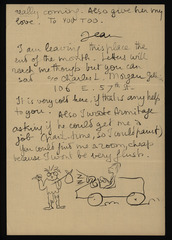 really coming. Also give her my
love. To YOU TOO.
Jean
I am leaving this place the
end of the month. Letters will
reach me through but you can
c/o Charles L. Morgan
106 E. 57th St.
It is very cold here, if that is any help
to you. Also I wrote Armitage
asking if he could get me a
job (part time, so I could paint)
you could find me a room, cheap
because I won't be very flush.